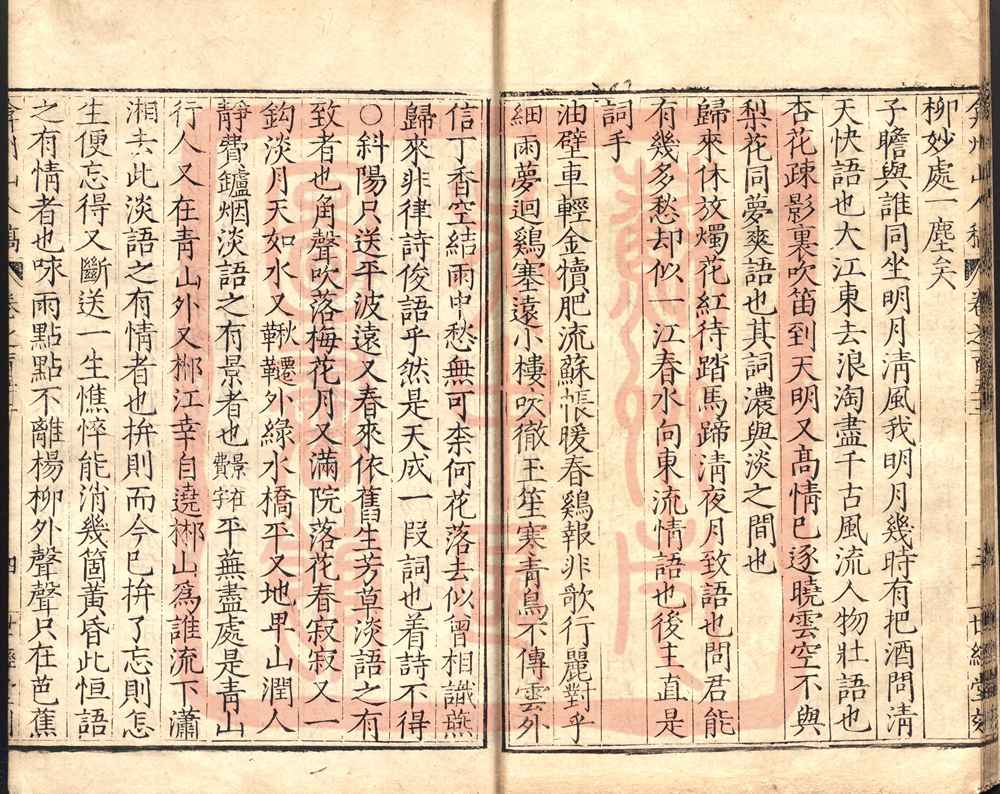 柳妙處一塵矣
子瞻與誰同坐明月清風我明月幾時有把酒問清
天快語也大江東去浪淘盡千古風流人物壯語也
杏花疎影裏吹笛到天明又高情已逐曉雲空不與
梨花同夢爽語也其詞濃與淡之間也
歸來休放燭花紅待踏馬蹄清夜月致語也問君能
有幾多愁却似一江春水向東流情語也後主直是
詞手
油壁車輕金犢肥流蘇帳暖春鷄報非歌行麗對乎
細雨夢迴鷄塞遠小樓吹徹玉笙寒青鳥不傳雲外
信丁香空結雨中愁無可奈何花落去似曾相識燕
歸來非律詩俊語乎然是天成一段詞也着詩不得
〇斜陽只送平波遠又春來依舊生芳草淡語之有
致者也角聲吹落梅花月又滿院落花春寂寂又一
鈎淡月天如水又鞦韆外綠水橋平又地卑山潤人
靜費鑪烟淡語之有景者也景在費字平蕪盡處是青山
行人又在青山外又郴江幸自遶郴山爲誰流下瀟
湘去此淡語之有情者也拚則而今已拚了忘則怎
生便忘得又斷送一生憔悴能消幾箇黃昏此恒語
之有情者也咏雨點點不離楊柳外聲聲只在芭蕉